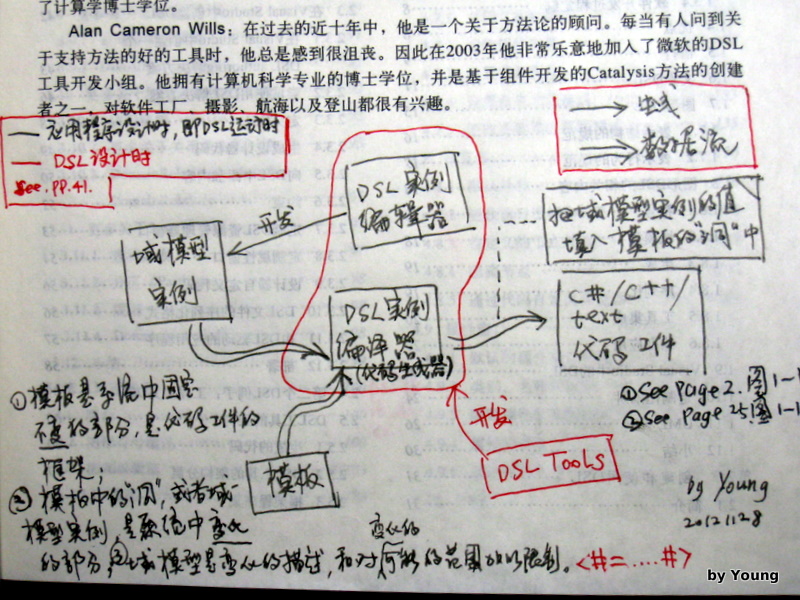 了计算学博士学位。
Alan Cameron Wills：在过去的近十年中，他是一个关于方法论的顾问。每当有人问到关
于支持方法的好的工具时，他总是感到很沮丧。因此在2003年他非常乐意地加入了微软的DSL
工具开发小组。他拥有计算机科学专业的博士学位，并是基于组件开发的Catalysis方法的创建
者之一，对软件工厂、摄影、航海以及登山都很有兴趣。
应用程序设计时，即DSL运动时
DSL设计时
See.PP.41.
生成
数据流
DSL实例
编辑器
开发
域模型
实例
把域模型实例的值
填入模板的"洞"中
DSL实例
编译器
(代码生成器)
C#/C++/
text
代码工件
①See page2.图1-1
②See page25.图1-1
①模板是系统中固定
不变的部分，是代码工件的
框架；
②模板中的"洞"，或者域
模型实例，是系统中变化
的部分，③域模型是变化的描述，和对
变化的
可能的范围加以限制。<#=....#>
模板
开发
DSL TOOLS
by Young
20121128
by Young